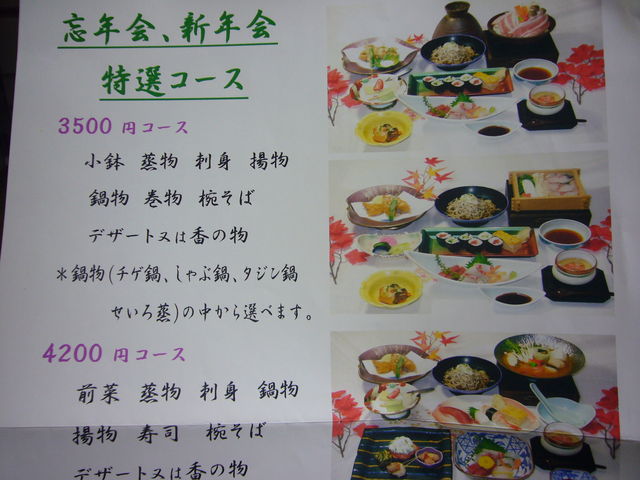 忘年会、新年会
特選コース
3500 円コース
小鉢 蒸物 刺身 揚物
鍋物 巻物 椀そば
デザート又は香の物
*鍋物(チゲ鍋、しゃぶ鍋、タジン鍋
せいろ蒸)の中から選べます。
4200 円コース
前菜 蒸物 刺身 鍋物
揚物 寿司 椀そば
デザート又は香の物